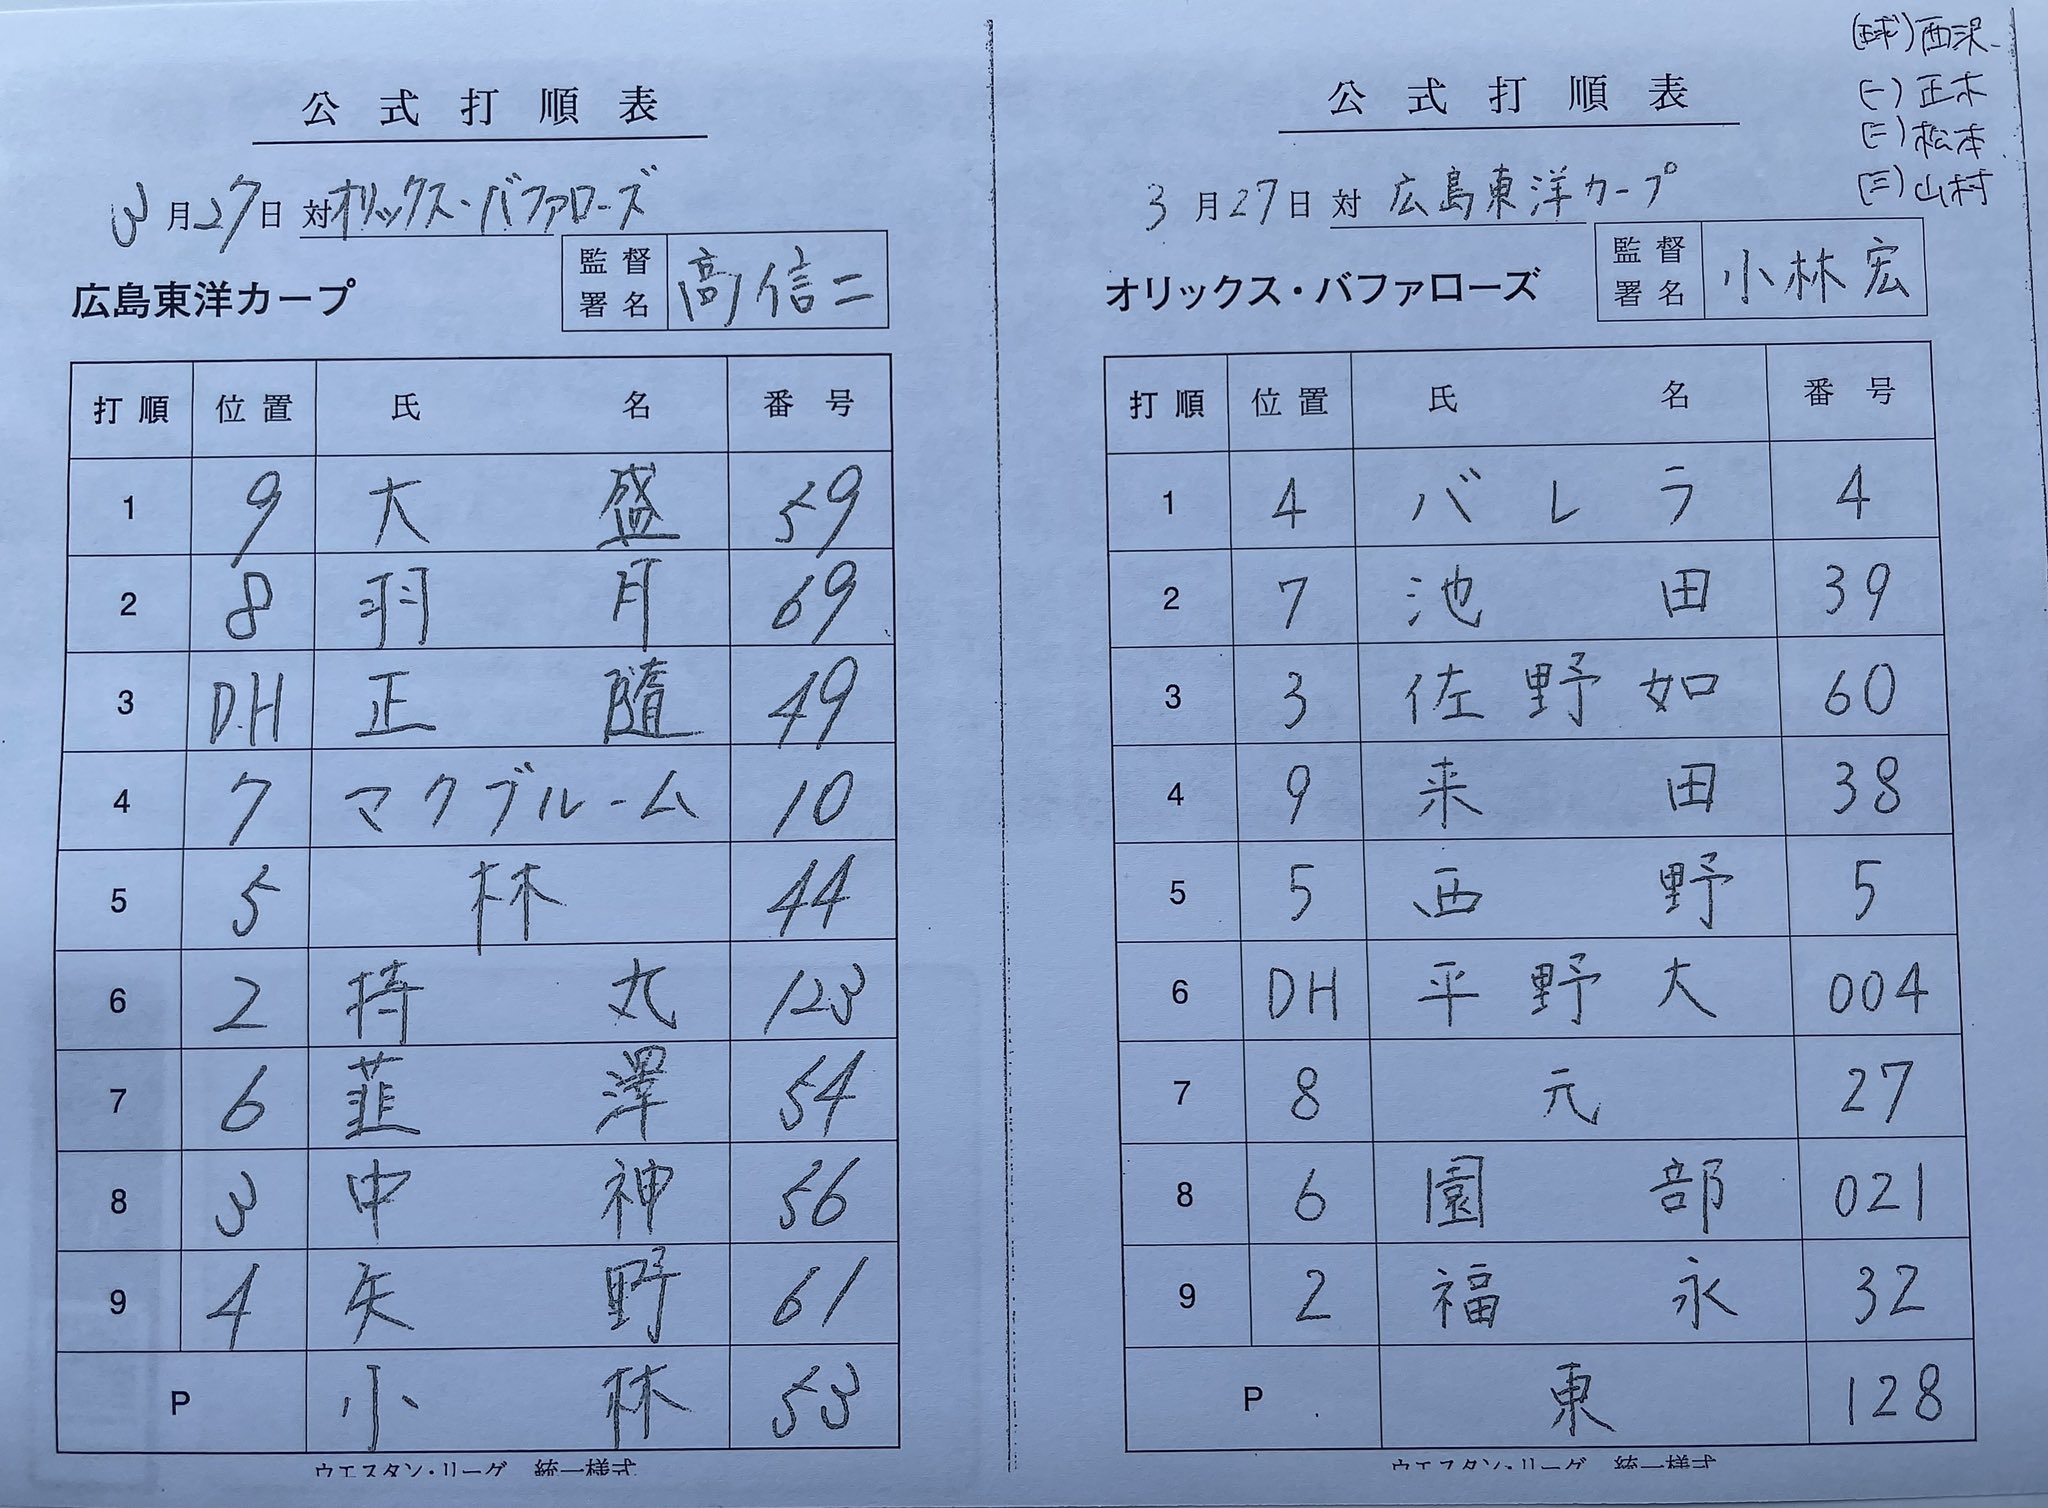 公式打順表
3月27日 対オリックス・バファローズ
広島東洋カープ
監督署名 高信二
打順 位置 氏名 番号
1 9 大盛 59
2 8 羽月 69
3 DH 正隨 49
4 7 マクブルーム 10
5 5 林 44
6 2 持丸 123
7 6 韮澤 54
8 3 中神 56
9 4 矢野 61
P 小林 53
ウエスタン・リーグ 統一様式
(球)西沢
(一)正木
(二)松本
(三)山村
公式打順表
3月27日 対 広島東洋カープ
オリックス・バファローズ
監督署名 小林宏
打順 位置 氏名 番号
1 4 バレラ 4
2 7 池田 39
3 3 佐野如 60
4 9 来田 38
5 5 西野 5
6 DH 平野大 004
7 8 元 27
8 6 園部 021
9 2 福永 32
P 東 128
ウエスタン・リーグ 統一様式